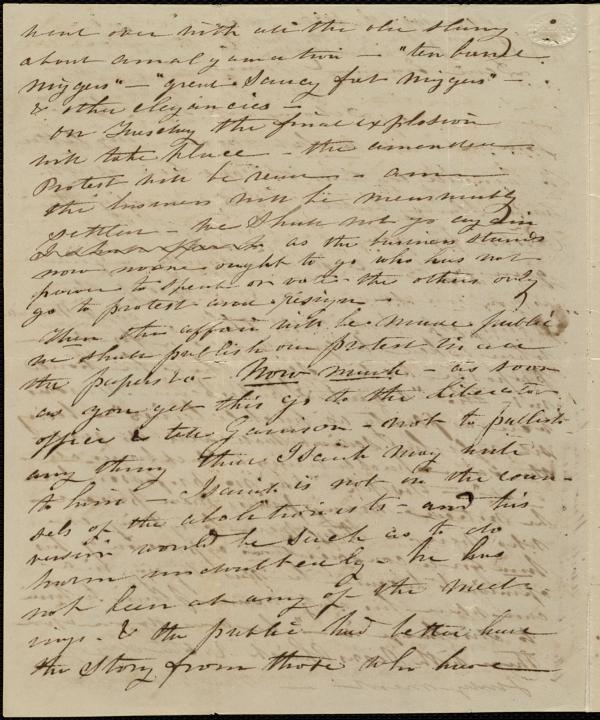 went over with all the old slang
about amalgamation - "ten
niggers" - "great saucy fat niggers" -
& other elegancies -
On Tuesday the final explosion
will take place - the amended
Protest will be - and
the business will be
settled - we shall not go again
as the business stands
now no one ought to go who has not
power to speak or vote - the others only
go to protest and resign -
Then the affair will be made public
we shall publish our protest in all
the papers &c - Now mark - as soon
as you get this go to the Liberator
office & tell Garrison - not to publish
any thing that Isaiah may write
to him - Isaiah is not in the coun-
sels of the abolitionists - and his
version would be such as to do
harm undoubtedly - he has
not been at any of the meet-
ings - & the public had better have
the story from those who have